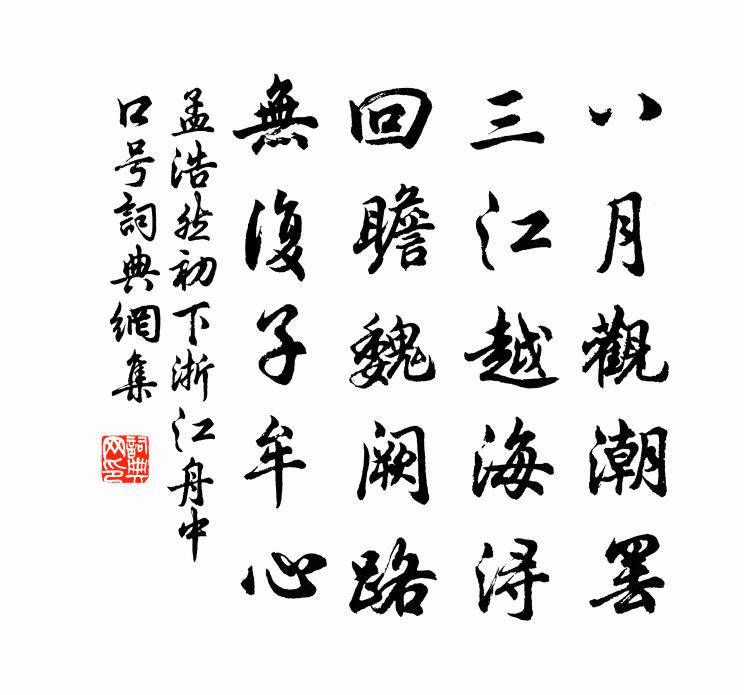 八月觀潮罢
三江越海浔
回瞻魏阙路
無復子牟心
孟浩然初下浙江舟中
口号詞典網集
詞典
网印